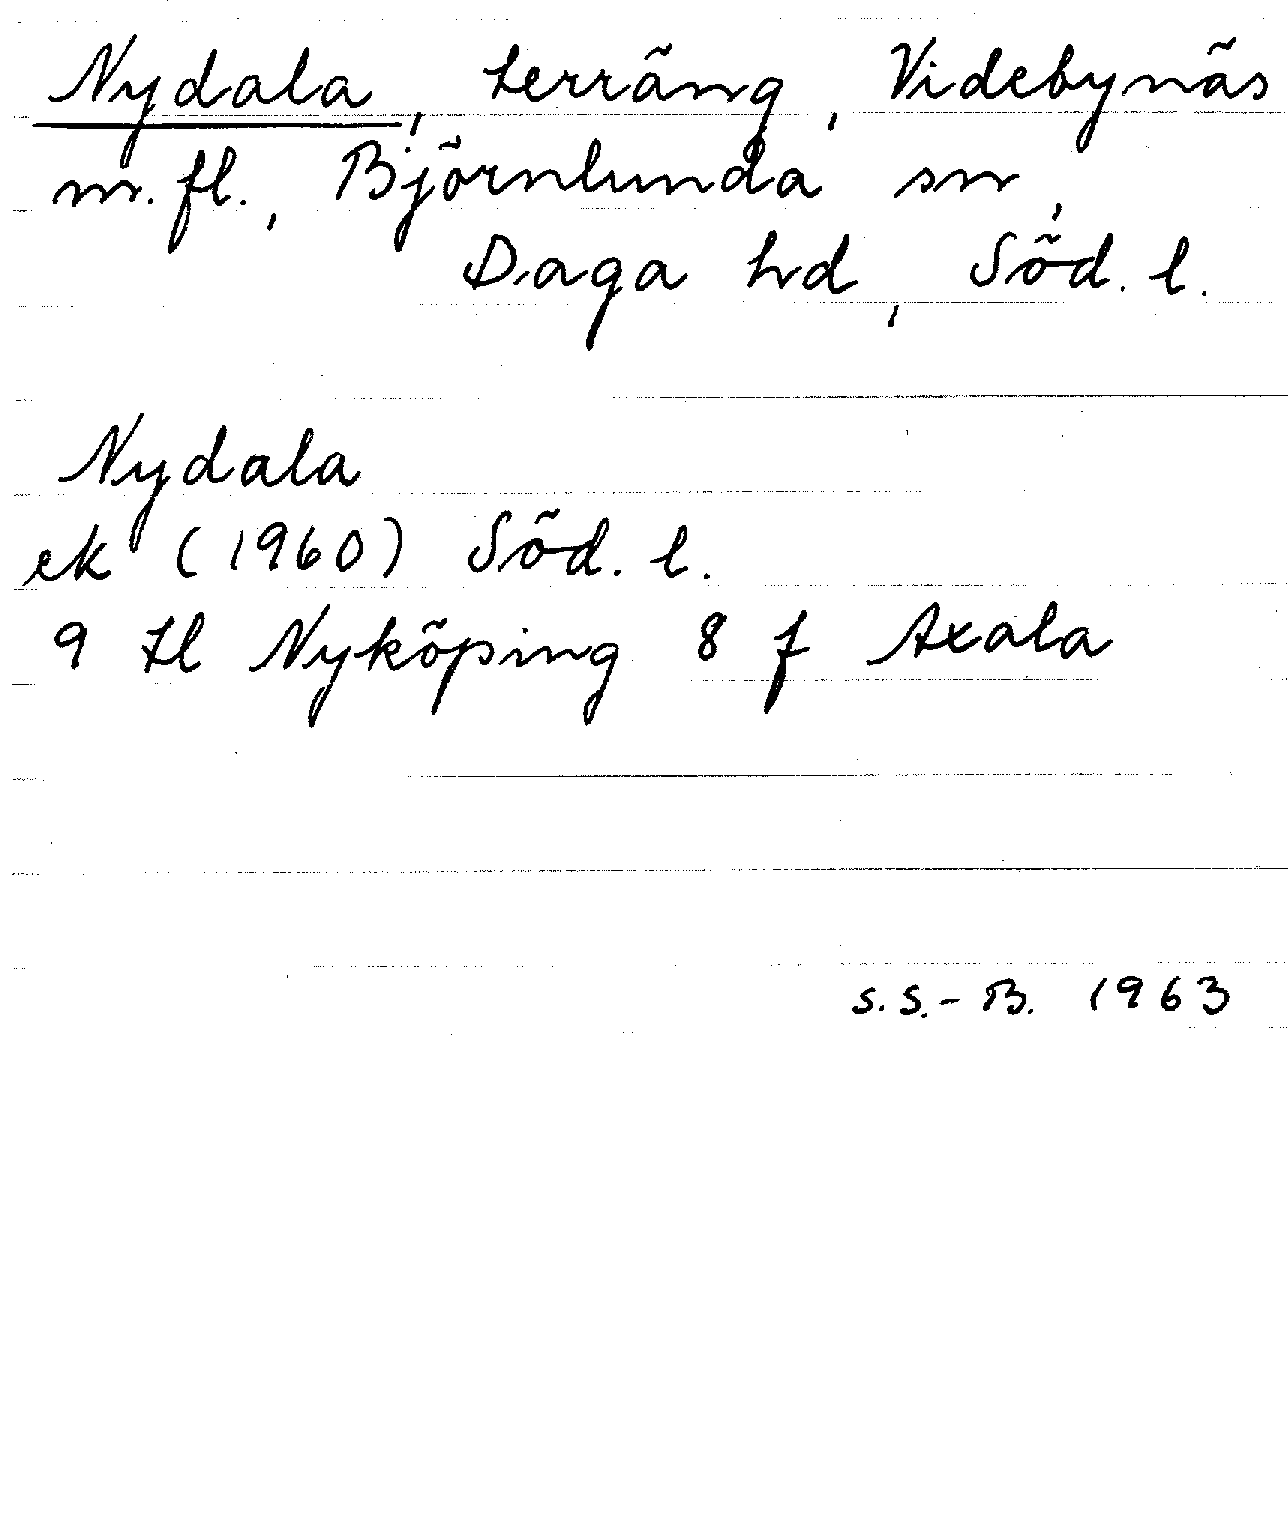 Nydala, terräng, Videbynäs
m.fl., Björnlunda sn,
Daga hd, Söd. l.
Nydala
ek (1960) Söd. l.
9 tl Nyköping 8 f Axala
S.S.-B. 1963